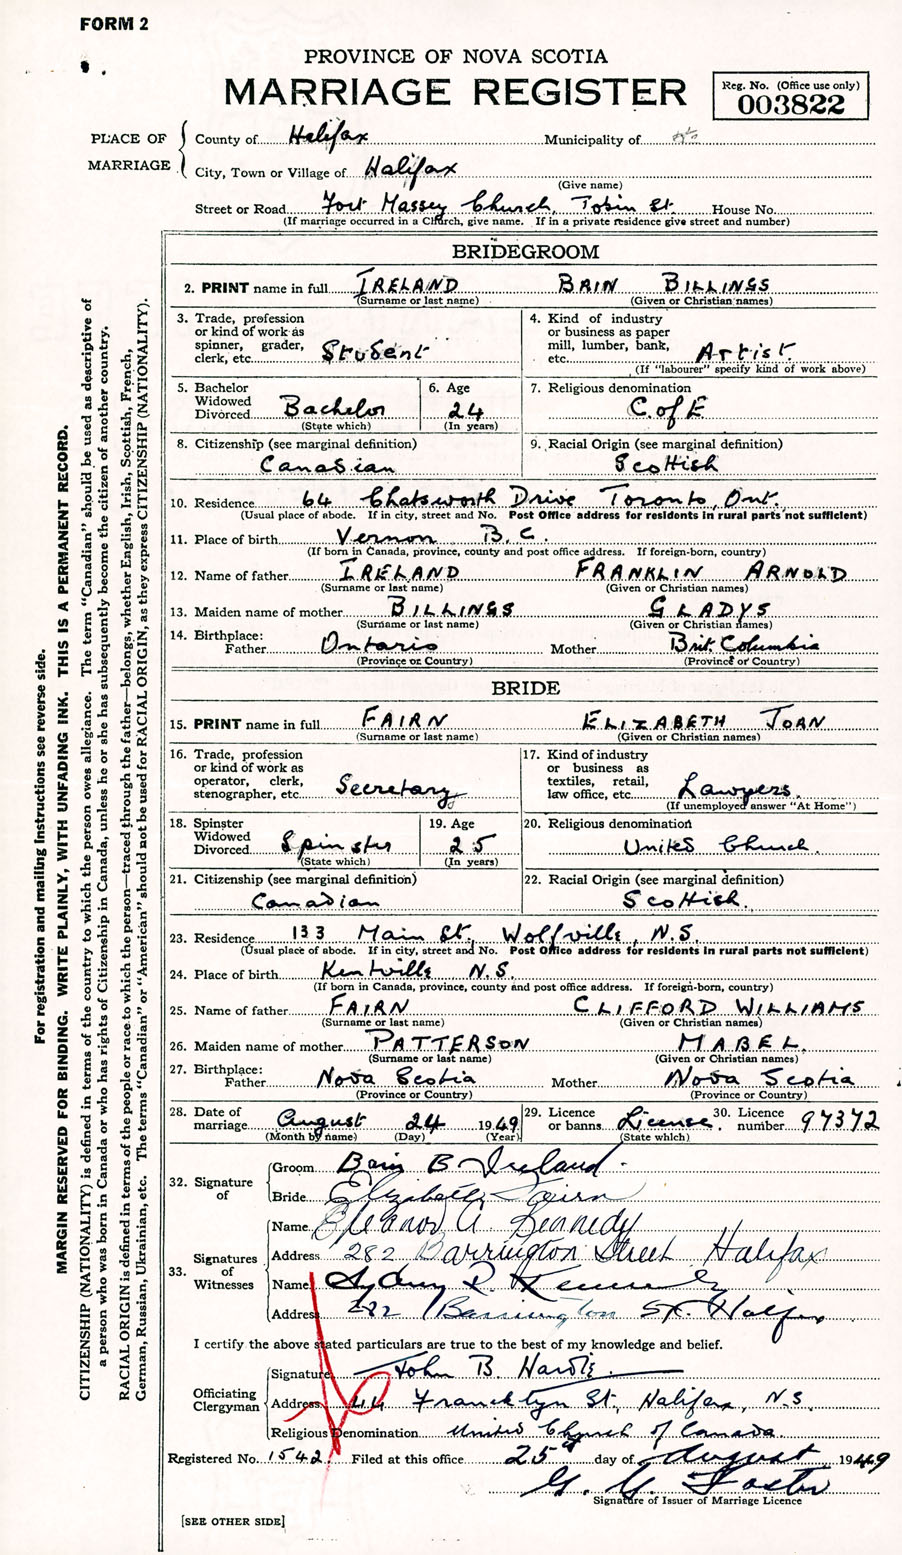 FORM 2
PROVINCE OF NOVA SCOTIA
MARRIAGE REGISTER
Reg. No. (Office use only)
003822
PLACE OF MARRIAGE
County of Halifax Municipality of
City, Town or Village of Halifax
(Give name)
Street or Road Fort Massey Church, Tobin St. House No.
(If marriage occurred in a Church, give name. If in a private residence give street and number)
BRIDEGROOM
2. PRINT name in full IRELAND BAIN BILLINGS
(Surname or last name) (Given or Christian names)
3. Trade, profession or kind of work as spinner, grader, clerk, etc. Student
4. Kind of industry or business as paper mill, lumber, bank, etc. Artist.
(If "labourer" specify kind of work above)
5. Bachelor Widowed Divorced Bachelor
(State which)
6. Age 24
(In years)
7. Religious denomination C. of E
8. Citizenship (see marginal definition)
Canadian
9. Racial Origin (see marginal definition)
Scottish
10. Residence 64 Chatsworth Drive Toronto, Ont.
(Usual place of abode. If in city, street and No. Post Office address for residents in rural parts not sufficient)
11. Place of birth Vernon B.C.
(If born in Canada, province, county and post office address. If foreign-born, country)
12. Name of father IRELAND FRANKLIN ARNOLD
(Surname or last name) (Given or Christian names)
13. Maiden name of mother BILLINGS GLADYS
(Surname or last name) (Given or Christian names)
14. Birthplace:
Father Ontario Mother Brit. Columbia
(Province or Country) (Province or Country)
BRIDE
15. PRINT name in full FAIRN ELIZABETH JOAN
(Surname or last name) (Given or Christian names)
16. Trade, profession or kind of work as operator, clerk, stenographer, etc. Secretary
17. Kind of industry or business as textiles, retail, law office, etc. Lawyers.
(If unemployed answer "At Home")
18. Spinster Widowed Divorced Spinster
(State which)
19. Age 25
(In years)
20. Religious denomination
United Church.
21. Citizenship (see marginal definition)
Canadian
22. Racial Origin (see marginal definition)
Scottish.
23. Residence 133 Main St., Wolfville, N.S.
(Usual place of abode. If in city, street and No. Post Office address for residents in rural parts not sufficient)
24. Place of birth Kentville N.S.
(If born in Canada, province, county and post office address. If foreign-born, country)
25. Name of father FAIRN CLIFFORD WILLIAMS
(Surname or last name) (Given or Christian names)
26. Maiden name of mother PATTERSON MABEL.
(Surname or last name) (Given or Christian names)
27. Birthplace:
Father Nova Scotia Mother Nova Scotia
(Province or Country) (Province or Country)
28. Date of marriage August 24 1949
(Month by name) (Day) (Year)
29. Licence or banns License.
(State which)
30. Licence number 97372
32. Signature of
Groom Bain B Ireland.
Bride Elizabeth Fairn
33. Signatures of Witnesses
Name Eleanor A. Kennedy
Address 282 Barrington Street Halifax
Name Sydney R. Kennedy
Address 282 Barrington St. Halifax
I certify the above stated particulars are true to the best of my knowledge and belief.
Officiating Clergyman
Signature John B. Hardie
Address 44 Francklyn St., Halifax, N.S.
Religious Denomination United Church of Canada
Registered No. 1542. Filed at this office 25 day of August 1949
G. G. Foster
Signature of Issuer of Marriage Licence
[SEE OTHER SIDE]
For registration and mailing instructions see reverse side.
MARGIN RESERVED FOR BINDING. WRITE PLAINLY, WITH UNFADING INK. THIS IS A PERMANENT RECORD.
CITIZENSHIP (NATIONALITY) is defined in terms of the country to which the person owes allegiance. The term "Canadian" should be used as descriptive of
a person who was born in Canada or who has rights of Citizenship in Canada, unless he or she has subsequently become the citizen of another country.
RACIAL ORIGIN is defined in terms of the people or race to which the person—traced through the father—belongs, whether English, Irish, Scottish, French,
German, Russian, Ukrainian, etc. The terms "Canadian" or "American" should not be used for RACIAL ORIGIN, as they express CITIZENSHIP (NATIONALITY).